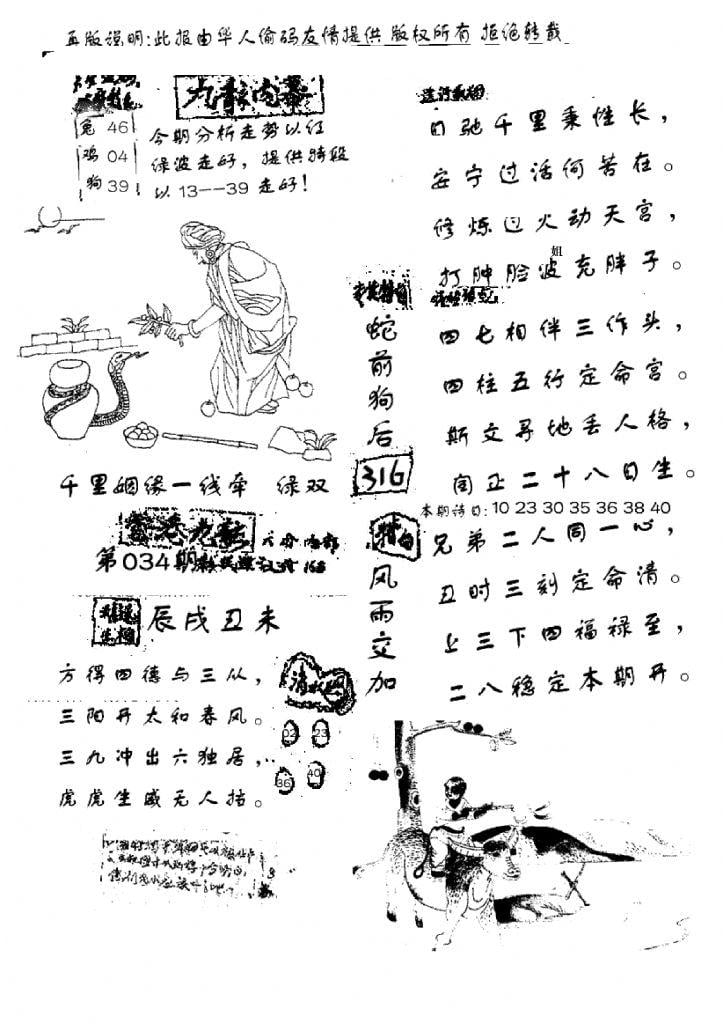 再版说明:此报由华人偷码友情提供 版权所有 拒绝转载
九龙内幕
兔 46
鸡 04
狗 39
今期分析走势以红
绿波走好，提供特段
以 13--39 走好！
千里姻缘一线牵 绿双
第034期
辰戌丑未
方得四德与三从，
三阳开太和春风。
三九冲出六独居，
虎虎生威无人挡。
02 23
36 40
日驰千里秉性长，
安宁过活何苦在。
修炼过火动天宫，
姐
打肿脸波充胖子。
蛇前狗后
316
四七相伴三作头，
四柱五行定命宫。
斯文寻地丢人格，
闰正二十八日生。
本期诗曰: 10 23 30 35 36 38 40
风雨交加
兄弟二人同一心，
丑时三刻定命清。
上三下四福禄至，
二八稳定本期开。